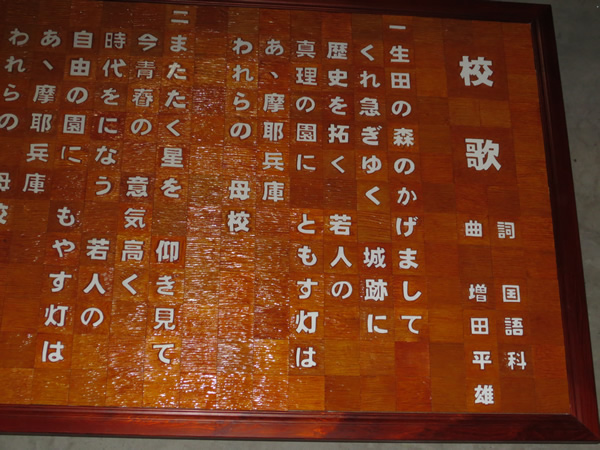 校歌
詞 国語科
曲 増田平雄
一 生田の森のかげまして
くれ急ぎゆく 城跡に
歴史を拓く 若人の
真理の園に ともす灯は
あゝ摩耶兵庫
われらの 母校
二 またたく星を 仰き見て
今青春の 意気高く
時代をになう 若人の
自由の園に もやす灯は
あゝ摩耶兵庫
われらの 母校